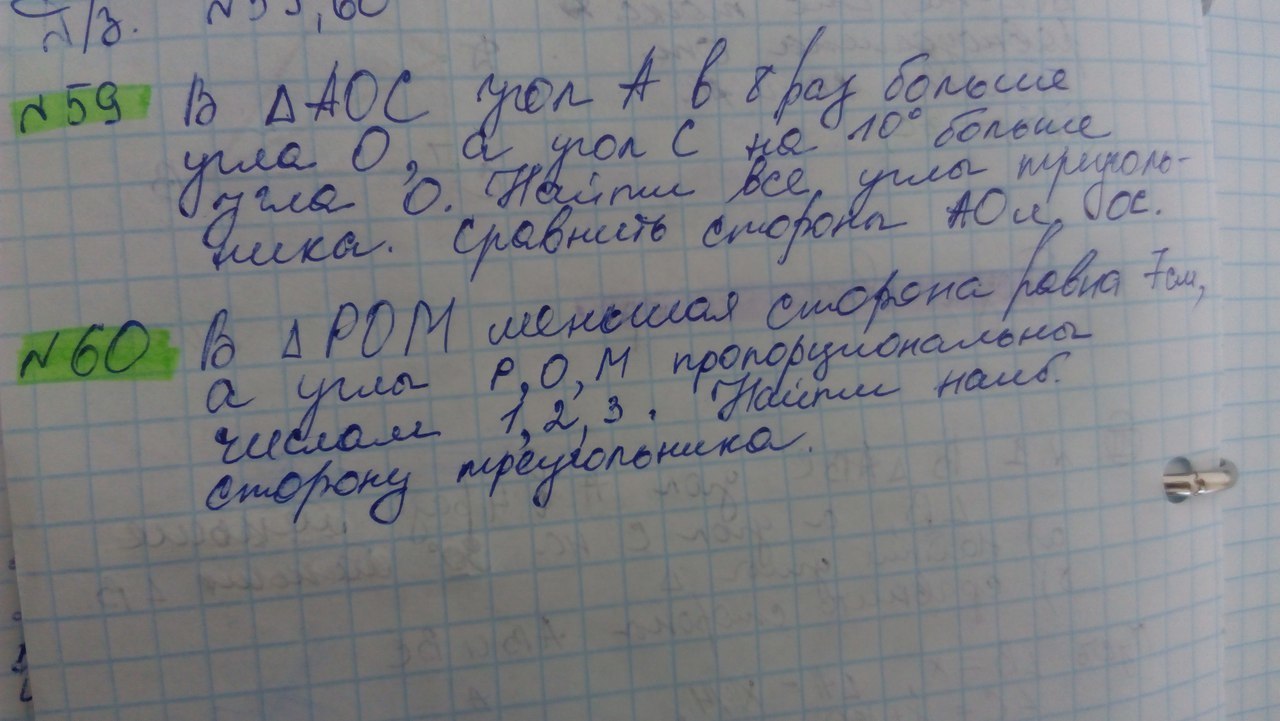 п/з. №59,60
№59 В △АОС угол А в 8 раз больше
угла О, а угол С на 10° больше
угла О. Найти все углы треуголь-
ника. Сравнить стороны АО и ОС.
№60 В △РОМ меньшая сторона равна 7см,
а углы Р, О, М пропорциональны
числам 1, 2, 3. Найти наиб.
сторону треугольника.